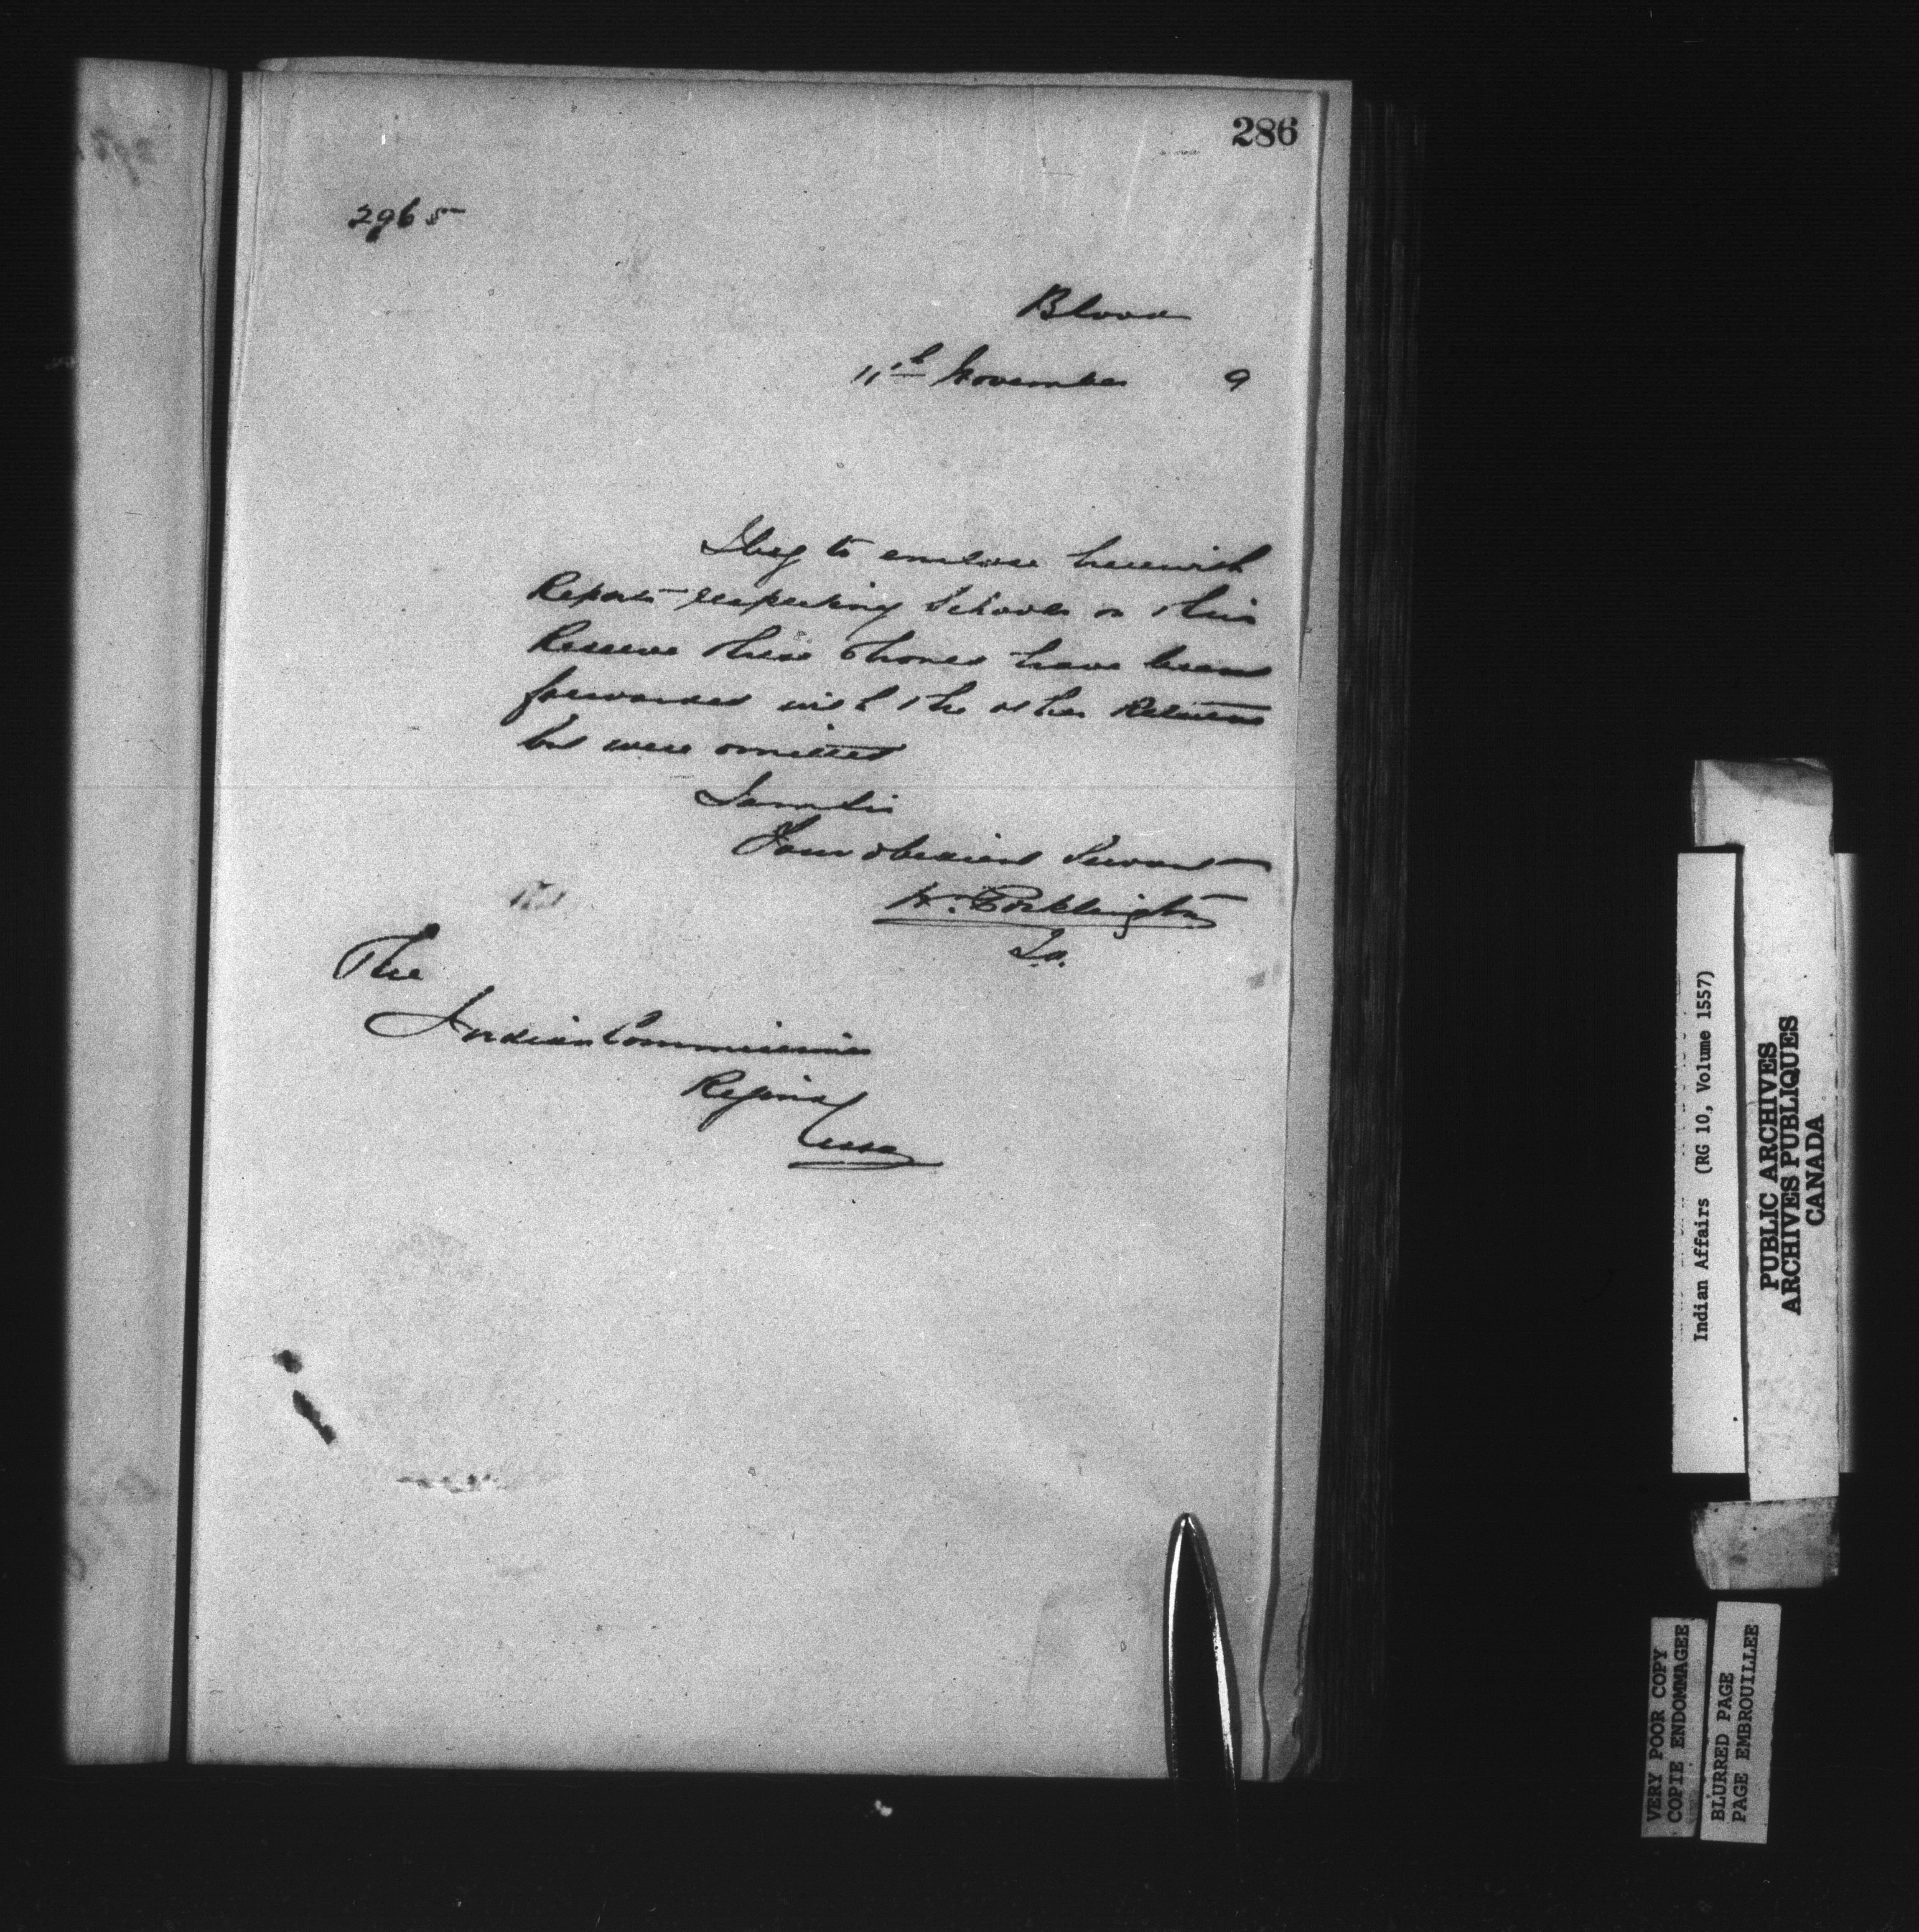 286
2965
Blood
11th November 9
I beg to enclose herewith
Reports respecting Schools on this
Reserve these should have been
forwarded with the other Returns
but were omitted
I am Sir
Your obedient Servant
W. Pocklington
I.A.
The
Indian Commissioner
Regina
Assa
Indian Affairs (RG 10, Volume 1557)
PUBLIC ARCHIVES
ARCHIVES PUBLIQUES
CANADA
VERY POOR COPY
COPIE ENDOMMAGEE
BLURRED PAGE
PAGE EMBROUILLEE